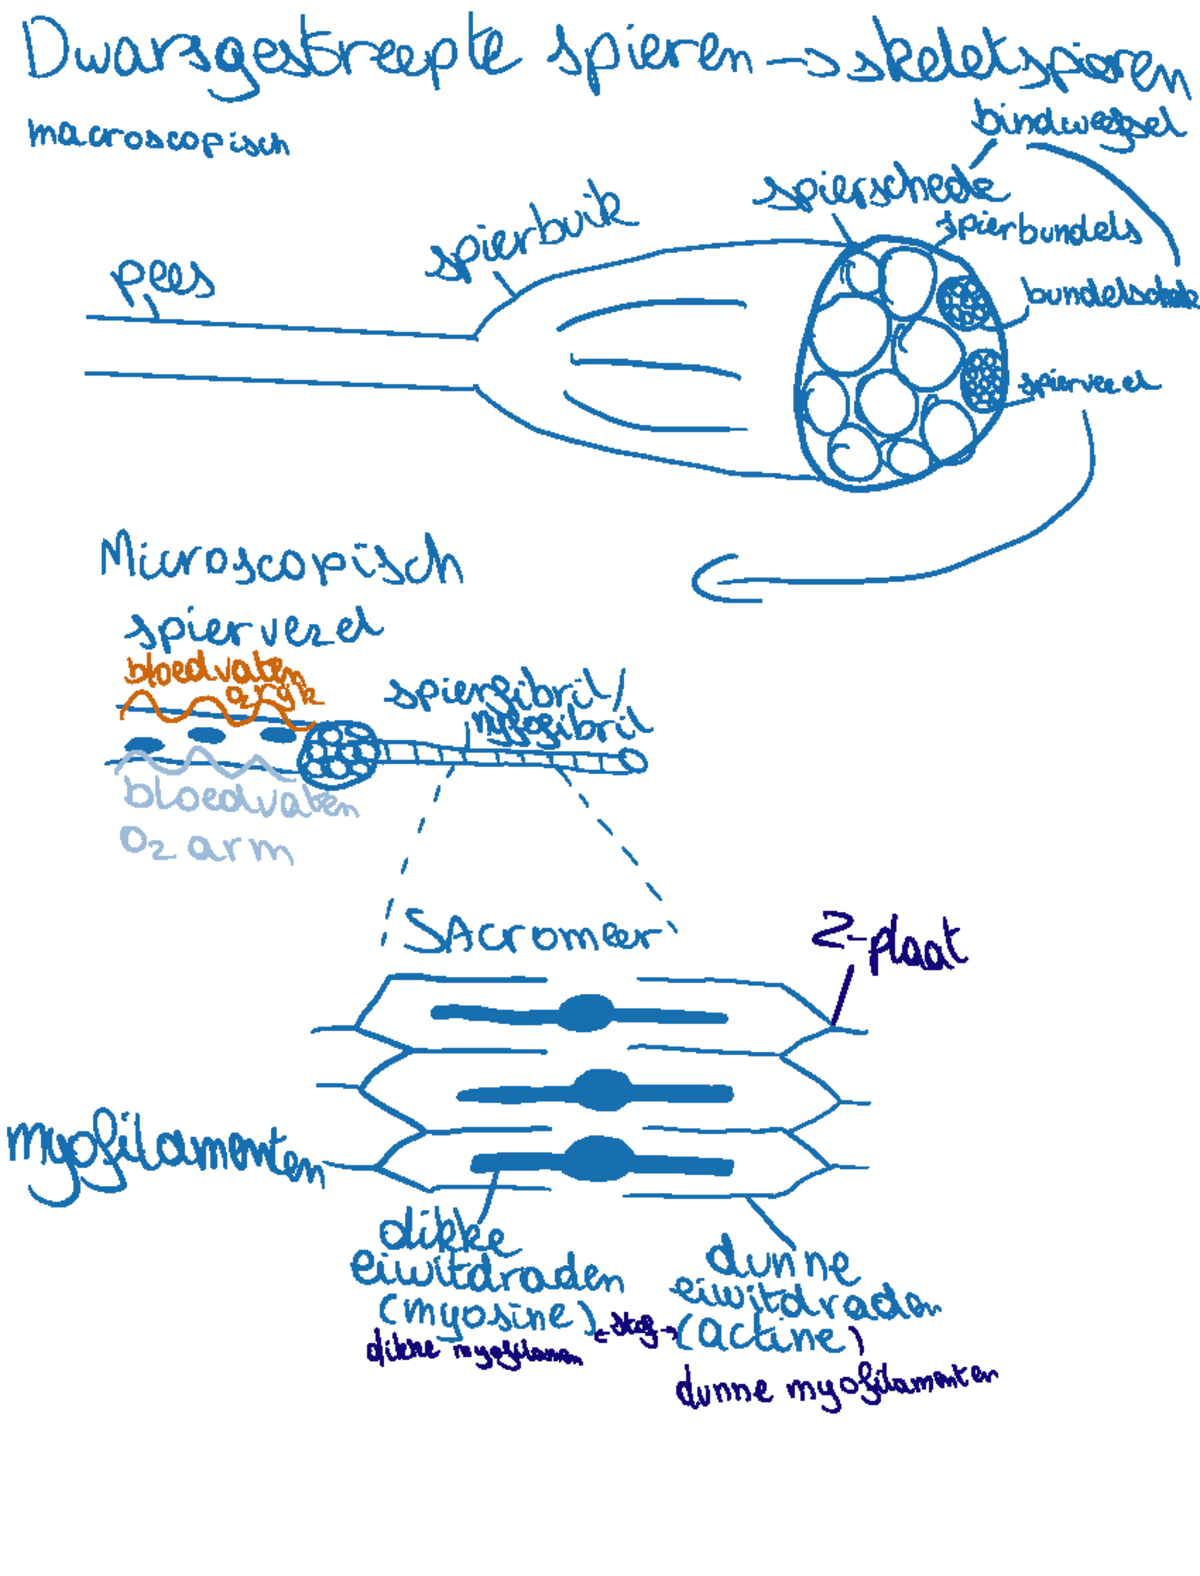 Dwarsgestreepte spieren → skeletspieren
macroscopisch
bindweefsel
spierschede
spierbuik
spierbundels
pees
bundelschede
spiervezel
Microscopisch
spiervezel
bloedvaten
O2 rijk
spierfibril/
myofibril
bloedvaten
O2 arm
SAcromeer
Z-plaat
myofilamenten
dikke
eiwitdraden
(myosine)
dikke myofilamen
← stof →
dunne
eiwitdraden
(actine)
dunne myofilamenten